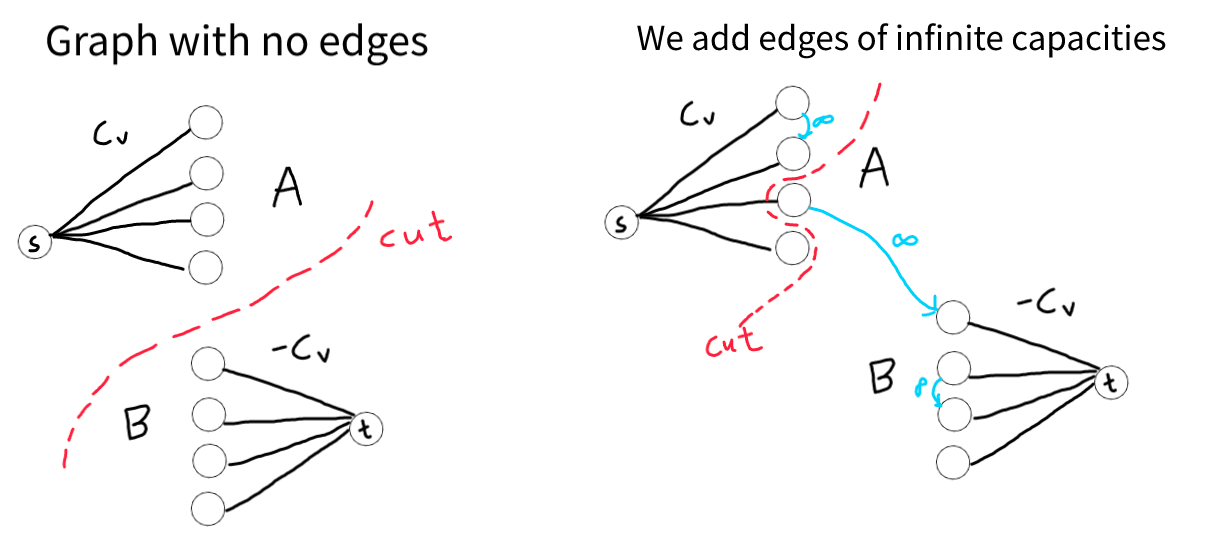 Graph with no edges
Cv
A
s
cut
-Cv
B
t
We add edges of infinite capacities
Cv
∞
A
s
∞
cut
-Cv
B
∞
t